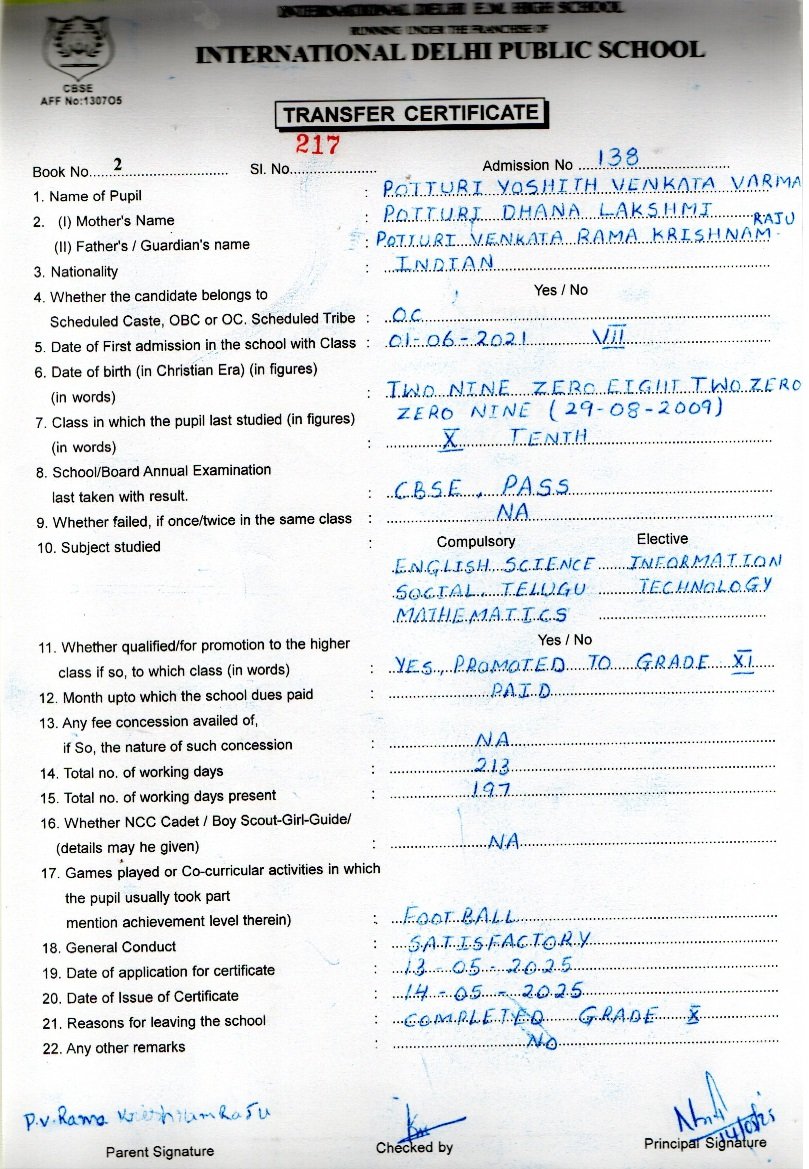 INTERNATIONAL DELHI E.M. HIGH SCHOOL
RUNNING UNDER THE FRANCHISE OF
INTERNATIONAL DELHI PUBLIC SCHOOL
CBSE
AFF No:130705
TRANSFER CERTIFICATE
Book No. 2 Sl. No. 217 Admission No 138
1. Name of Pupil : POTTURI YOSHITH VENKATA VARMA
2. (I) Mother's Name : POTTURI DHANA LAKSHMI
(II) Father's / Guardian's name : POTTURI VENKATA RAMA KRISHNAM RAJU
3. Nationality : INDIAN
4. Whether the candidate belongs to Yes / No
Scheduled Caste, OBC or OC. Scheduled Tribe : OC
5. Date of First admission in the school with Class : 01-06-2021 VII
6. Date of birth (in Christian Era) (in figures)
(in words) : TWO NINE ZERO EIGHT TWO ZERO
ZERO NINE (29-08-2009)
7. Class in which the pupil last studied (in figures)
(in words) : X TENTH
8. School/Board Annual Examination
last taken with result. : CBSE, PASS
9. Whether failed, if once/twice in the same class : NA
10. Subject studied : Compulsory Elective
ENGLISH SCIENCE INFORMATION
SOCIAL, TELUGU TECHNOLOGY
MATHEMATICS
11. Whether qualified/for promotion to the higher Yes / No
class if so, to which class (in words) : YES, PROMOTED TO GRADE XI
12. Month upto which the school dues paid : PAID
13. Any fee concession availed of,
if So, the nature of such concession : NA
14. Total no. of working days : 213
15. Total no. of working days present : 197
16. Whether NCC Cadet / Boy Scout-Girl-Guide/
(details may he given) : NA
17. Games played or Co-curricular activities in which
the pupil usually took part
mention achievement level therein) : FOOTBALL
18. General Conduct : SATISFACTORY
19. Date of application for certificate : 13-05-2025
20. Date of Issue of Certificate : 14-05-2025
21. Reasons for leaving the school : COMPLETED GRADE X
22. Any other remarks : NO
P.V. Rama Krishnam Raju
14/05/25
Parent Signature Checked by Principal Signature